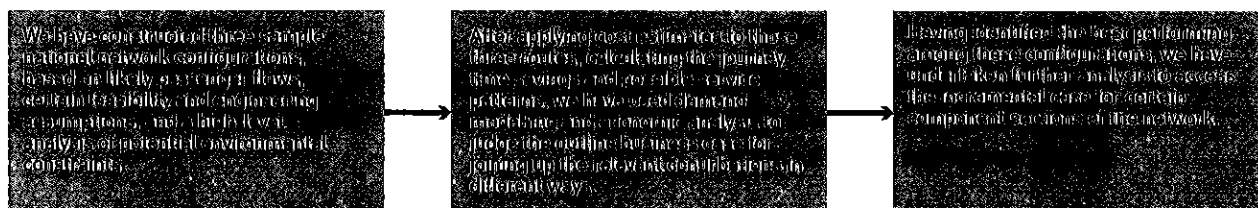 We have constructed three sample
national network configurations,
based on likely passenger flows,
certain feasibility and engineering
assumptions, and a high level
analysis of potential environmental
constraints.
After applying cost estimates to those
three routes, calculating the journey
time savings and possible service
patterns, we have used demand
modelling and economic analyses to
judge the outline business case for
joining up the relevant conurbations in
different ways.
Having identified the best performing
among these configurations, we have
undertaken further analysis to assess
the incremental case for certain
component sections of the network.